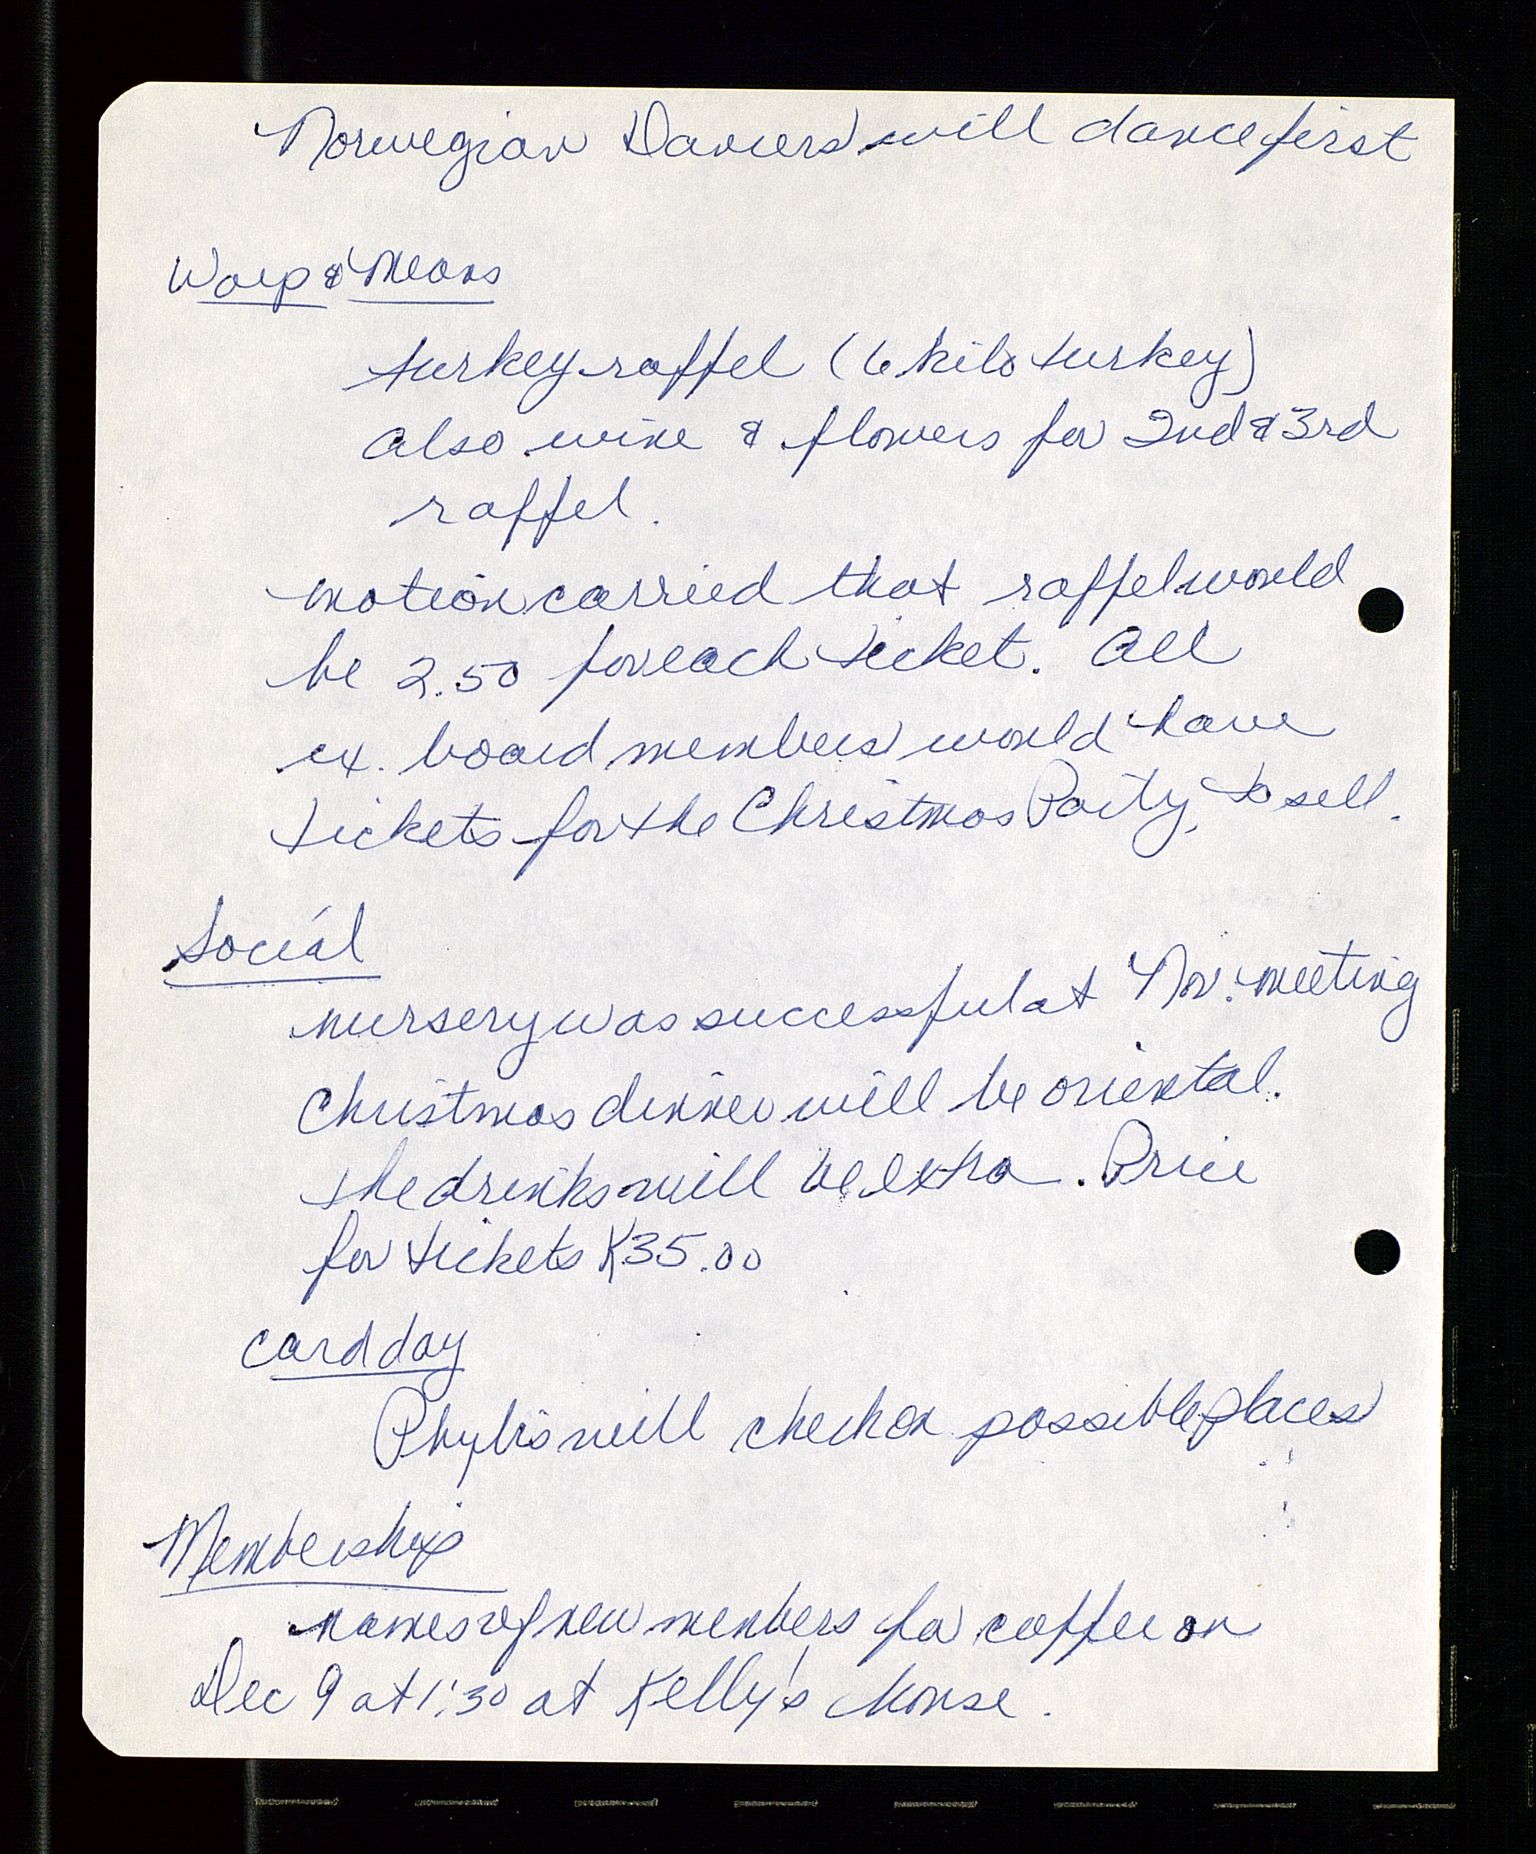 Norwegian Dancers will dance first
Ways & Means
turkey raffel (6 kilo turkey)
also wine & flowers for 2nd & 3rd
raffel.
motion carried that raffel would
be 2.50 for each ticket. All
ex. board members would have
tickets for the Christmas Party, to sell.
Social
nursery was successful at Nov. meeting
Christmas dinner will be oriental.
the drinks will be extra. Price
for tickets K35.00
card day
Phylis will check on possible places
Membership
names of new members for coffee on
Dec 9 at 1:30 at Kelly's house.